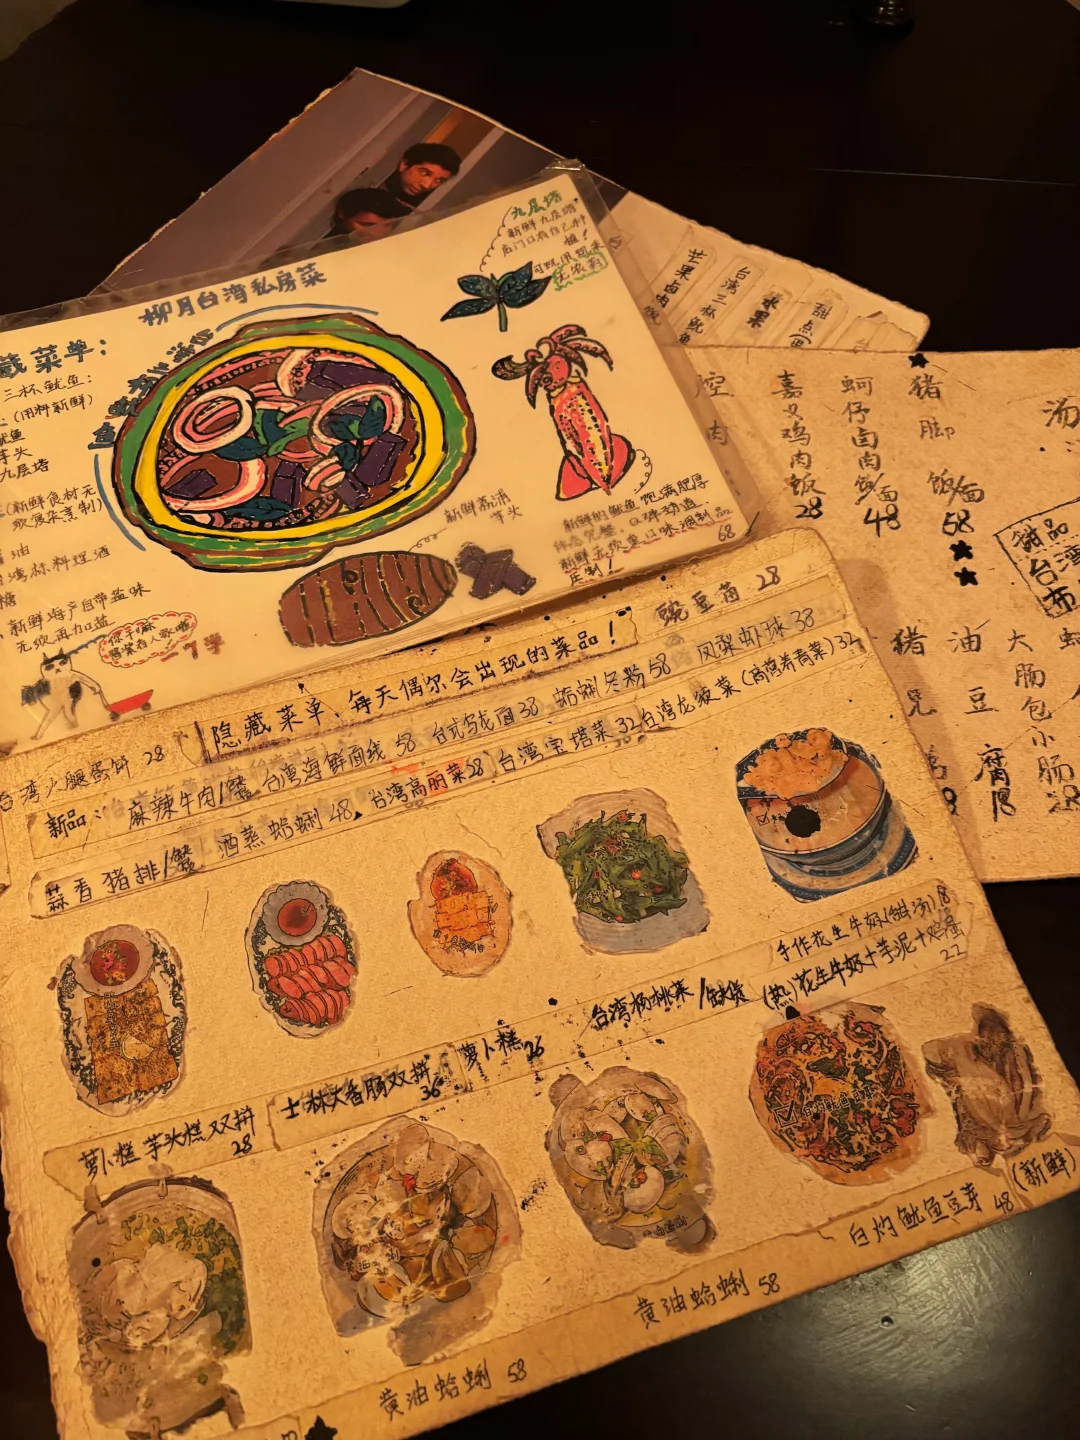 柳月台湾私房菜
藏菜单：
三杯鱿鱼：
(用料新鲜)
鱿鱼
芋头
九层塔
(新鲜食材无
油
台湾米料理酒
糖
新鲜海产自带盐味
无须再加盐
九层塔
新鲜九层塔
后门口有自己种
植！
可现用现采
无农药
新鲜荔浦
芋头
新鲜的鱿鱼饱满肥厚
体态完整，口味劲道
68
芒果卤肉饭
台湾三杯鱿鱼
水果
甜点
控肉
嘉义鸡肉饭 28
蚵仔卤肉饭/面 48
猪脚饭/面 58
汤
甜品
台湾
布
猪
油豆腐 18
大肠包小肠 28
隐藏菜单、每天偶尔会出现的菜品！
豌豆苗 28
台湾火腿蛋饼 28
新品：
麻辣牛肉/蟹
台湾海鲜面线 58
台式乌龙面 38
蛤蜊冬粉 58
凤梨虾球 38
蒜香猪排/蟹
酒蒸蛤蜊 48
台湾高丽菜 28
台湾宝塔菜 32
台湾龙须菜（高营养青菜）32
萝卜糕 芋头糕双拼 28
士林大香肠双拼 36
萝卜糕 26
台湾杨桃菜/缺货
手作花生牛奶(甜汤) 18
(热)花生牛奶+芋泥+鸡蛋 22
黄油蛤蜊 58
黄油蛤蜊 58
白灼鱿鱼豆芽 48
(新鲜)